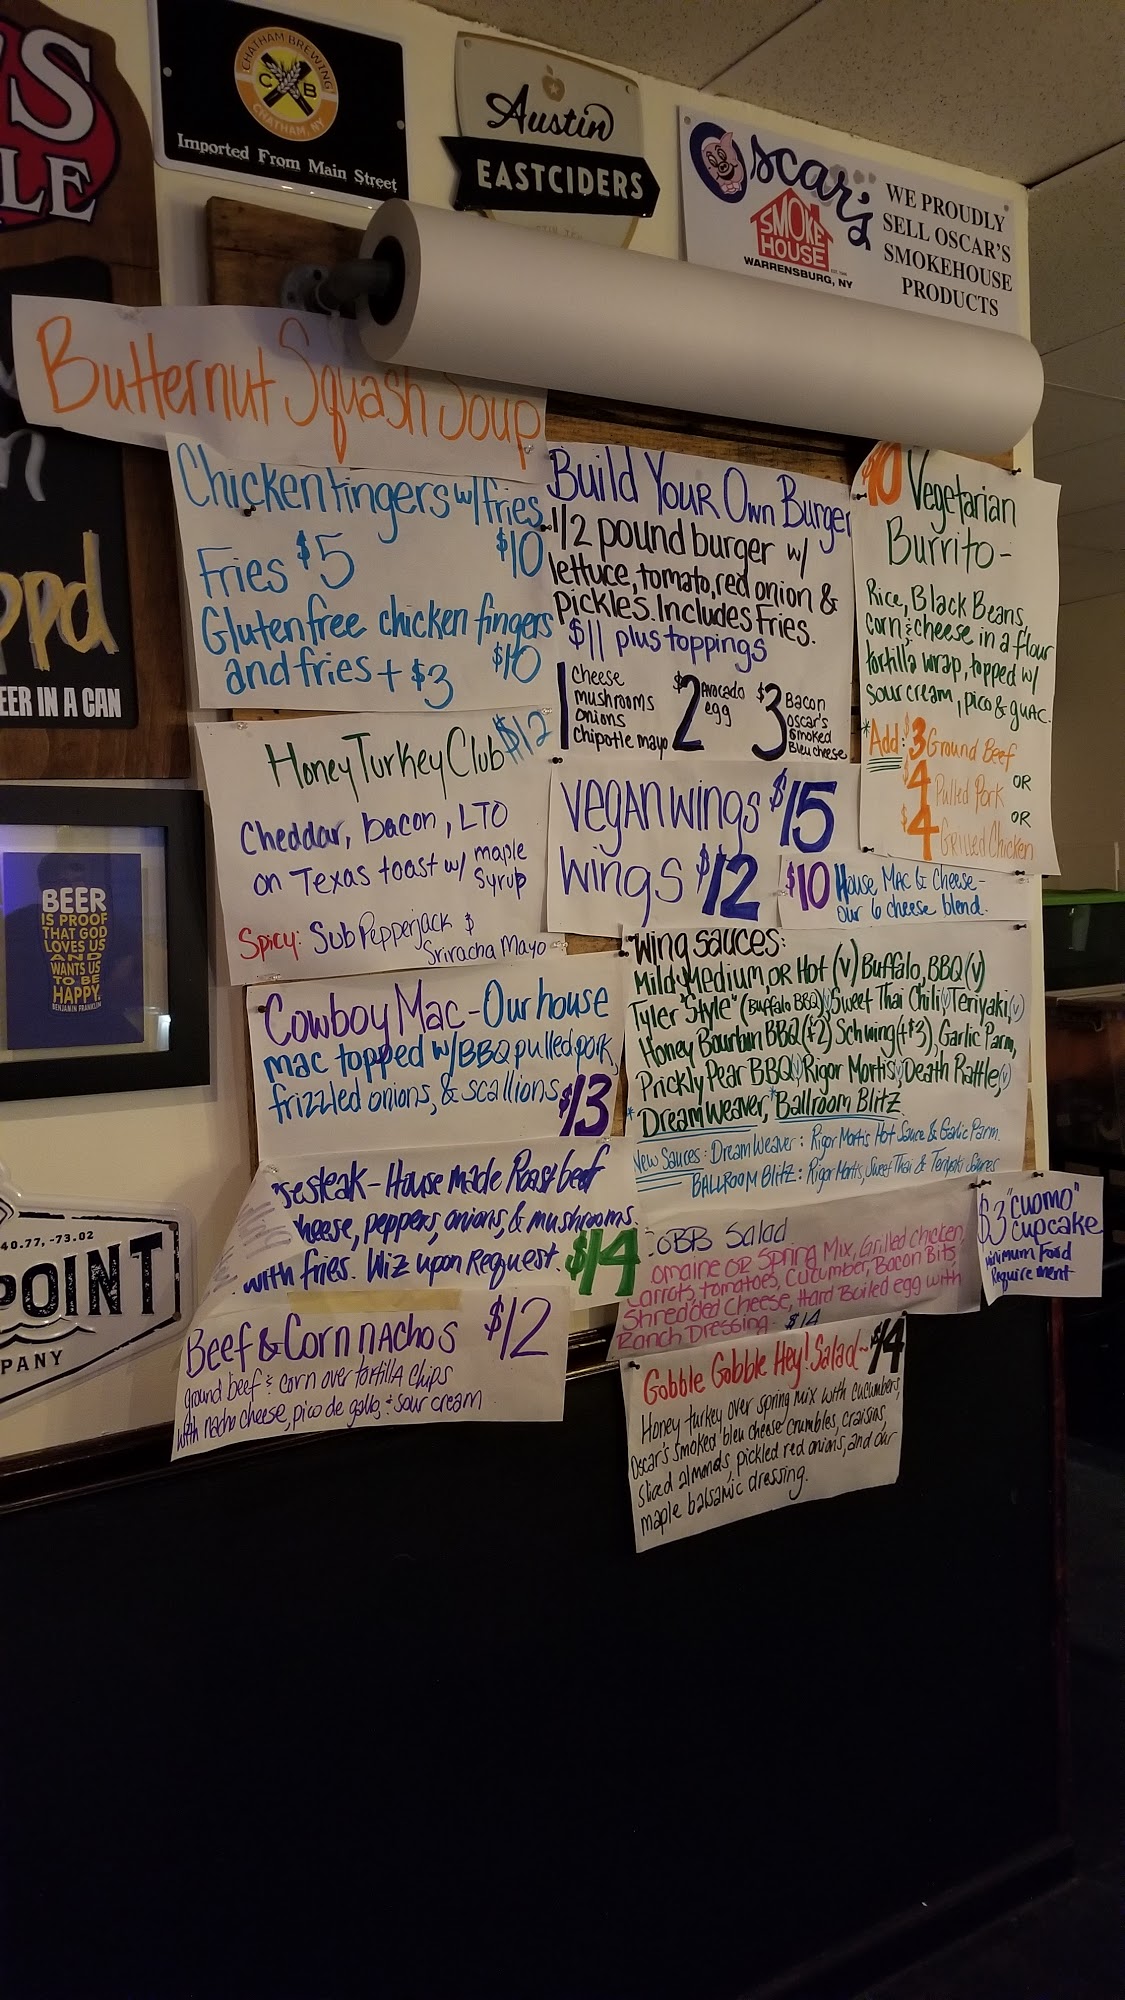 S
LE
CHATHAM BREWING
C B
CHATHAM, NY
Imported From Main Street
Austin
EASTCIDERS
Oscar's
SMOKE
HOUSE
WARRENSBURG, NY
WE PROUDLY
SELL OSCAR'S
SMOKEHOUSE
PRODUCTS
Butternut Squash Soup
Chicken fingers w/fries
$10
Fries $5
Gluten free chicken fingers
and fries + $3 $10
Build Your Own Burger
1/2 pound burger w/
lettuce, tomato, red onion &
pickles. Includes Fries.
$11 plus toppings
1
cheese
mushrooms
onions
chipotle mayo
$2
Avocado
egg
$3
Bacon
oscar's
smoked
Bleu cheese
$10 Vegetarian
Burrito-
Rice, Black Beans,
corn & cheese in a flour
tortilla wrap, topped w/
sour cream, pico & guac.
*Add: $3 Ground Beef
OR
$4 Pulled Pork
OR
$4 Grilled Chicken
ppd
EER IN A CAN
Honey Turkey Club $12
Cheddar, bacon, LTO
on Texas toast w/ maple
syrup
Spicy: Sub Pepperjack &
Sriracha Mayo
Vegan wings $15
wings $12
$10 House Mac & Cheese-
our 6 cheese blend.
BEER
IS PROOF
THAT GOD
LOVES US
AND
WANTS US
TO BE
HAPPY.
BENJAMIN FRANKLIN
Wing Sauces:
Mild, Medium, or Hot (v) Buffalo, BBQ (v)
Tyler "Style" (Buffalo BBQ)(v) Sweet Thai Chili(v) Teriyaki(v)
Honey Bourbon BBQ($2) Schwing(+$3), Garlic Parm,
Prickly Pear BBQ(v) Rigor Mortis(v) Death Rattle(v)
*Dream Weaver, *Ballroom Blitz
New Sauces: Dream Weaver: Rigor Mortis Hot Sauce & Garlic Parm.
BALLROOM BLITZ: Rigor Mortis, Sweet Thai & Teriyaki Sauces
Cowboy Mac - Our house
mac topped w/BBQ pulled pork,
frizzled onions, & scallions $13
sesteak - House made Roast beef
heese, peppers, onions, & mushrooms.
with fries. Wiz upon Request. $14
40.77, -73.02
POINT
PANY
OBB Salad
omaine OR Spring Mix, Grilled chicken,
Carrots, tomatoes, Cucumber, Bacon Bits,
Shredded Cheese, Hard Boiled egg with
Ranch Dressing - $14
$3 "Cuomo"
Cupcake
minimum Food
Requirement
Beef & Corn nachos $12
ground beef & corn over tortilla chips
with nacho cheese, pico de gallo & sour cream
Gobble Gobble Hey! Salad - $14
Honey turkey over spring mix with cucumbers,
Oscar's smoked bleu cheese crumbles, craisins,
sliced almonds, pickled red onions, and our
maple balsamic dressing.